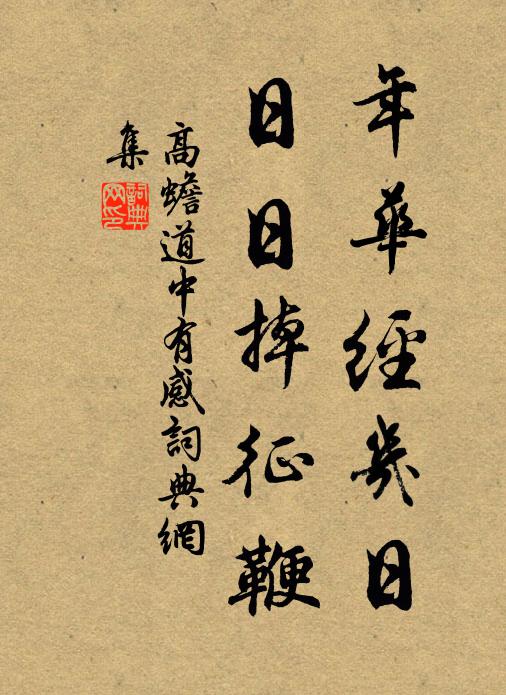 年華經幾日
日日掉征鞭
高蟾道中有感詞典網
集
詞典
网印